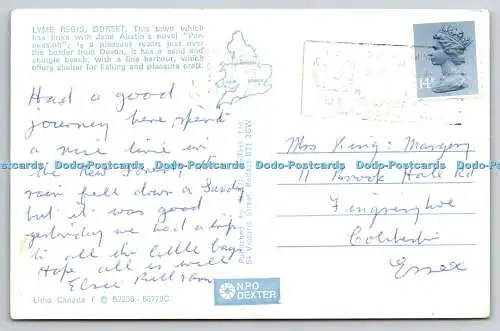 LYME REGIS, DORSET. This town which
has links with Jane Austin's novel "Per-
suasion", is a pleasant resort just over
the border from Devon. It has a sand and
shingle beach, with a fine harbour, which
offers shelter for fishing and pleasure craft.
Had a good
journey here, spent
a nice time in
the New Forest, the
rain fell down a Sunday
but it was good
yesterday we had a trip
to all the little bays
Hope all is well
Elsie
Published by
54 Victoria Street
Litho Canada
NPO
DEXTER
14P
Mrs King: Margery
11 Brook Hall Rd
Fingringhoe
Colchester
Essex
Dodo-Postcards Dodo-Postcards Dodo-Postcards Dodo-Postcards Dodo-Postcards Dodo-Postcards